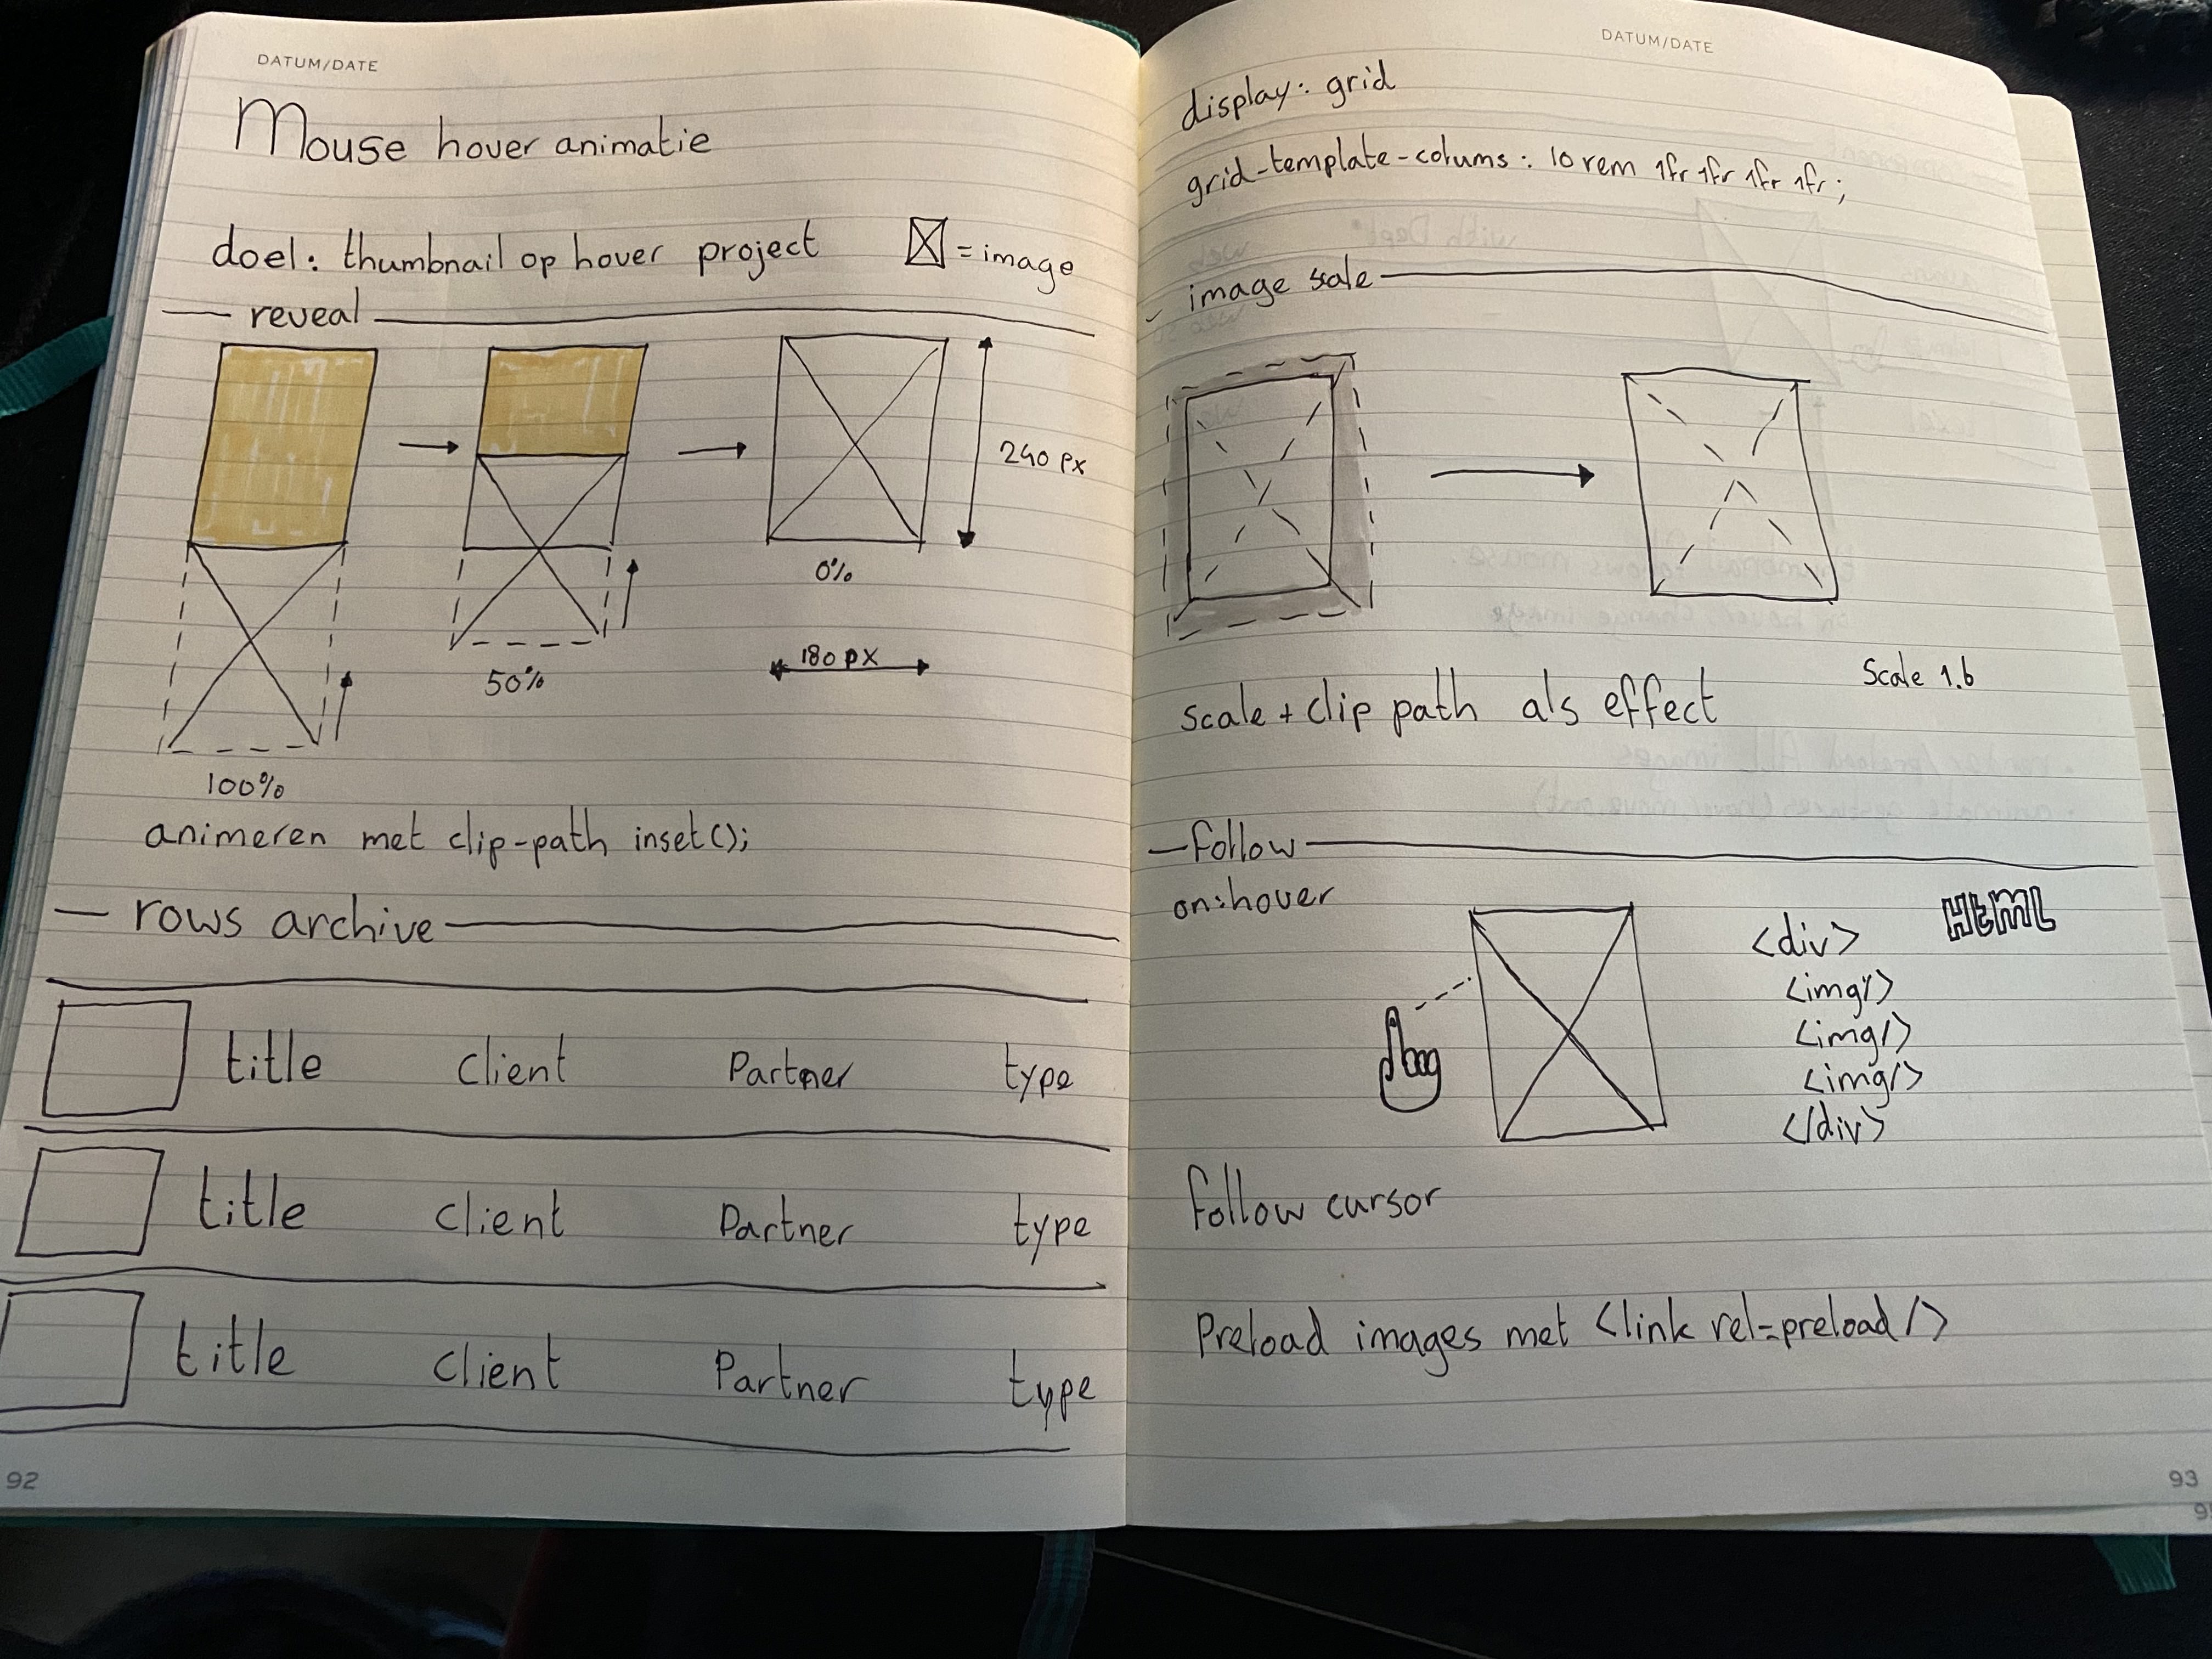 DATUM/DATE
Mouse hover animatie
doel: thumbnail op hover project = image
reveal
240 px
100%
50%
0%
180 px
animeren met clip-path inset();
rows archive
title client Partner type
title client Partner type
title client Partner type
92
DATUM/DATE
display: grid
grid-template-colums: 10rem 1fr 1fr 1fr 1fr;
image scale
Scale 1.6
scale + clip path als effect
follow
on:hover
HTML
<div>
<img/>
<img/>
<img/>
</div>
follow cursor
Preload images met <link rel=preload/>
93